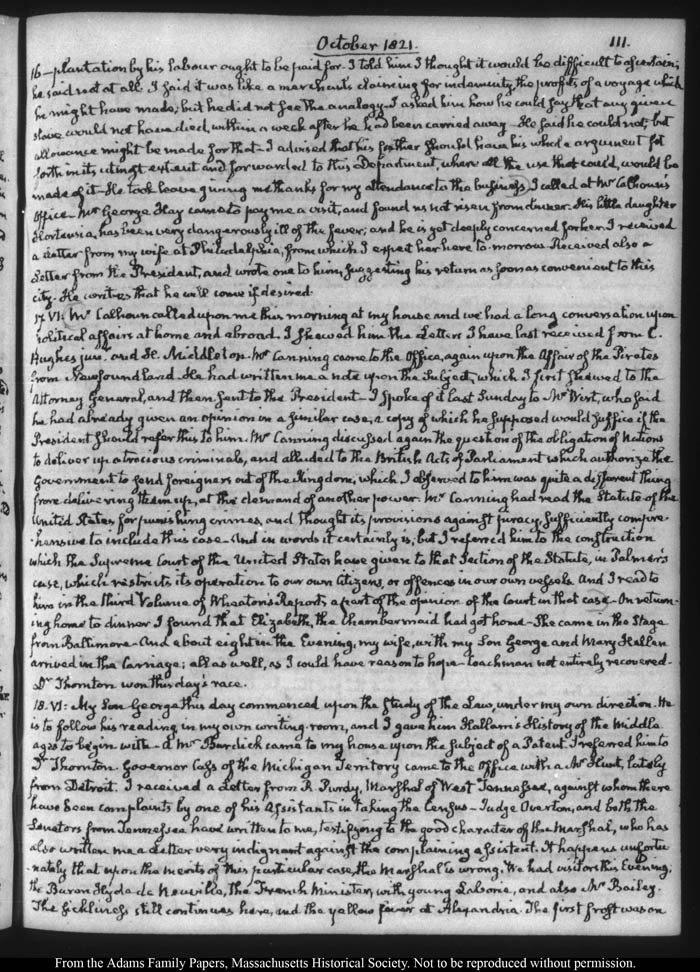 October 1821.
111.
16— plantation by his labour ought to be paid for. I told him I thought it would be difficult to ascertain;
he said not at all. I said it was like a merchants claiming for indemnity, the profits of a voyage which
he might have made; but he did not see the analogy. I asked him how he could say that any given
slave would not have died, within a week after he had been carried away— He said he could not; but
allowance might be made for that— I advised that his father should have his whole argument set
forth in its utmost extent and forwarded to this Department, where all the use that could, would be
made of it— He took leave giving me thanks for my attendance to the business, I called at Mr Calhoun's
Office. Mr George Hay came to pay me a visit, and found us not risen from dinner. His little daughter
Hortensia, has been very dangerously ill of the fever, and he is yet deeply concerned for her. I received
a Letter from my wife at Philadelphia, from which I expect her here to-morrow. Received also a
Letter from the President, and wrote one to him, suggesting his return as soon as convenient to this
city. He writes that he will come if desired.
17. VI: Mr Calhoun called upon me this morning at my house and we had a long conversation upon
political affairs at home and abroad. I shewed him the Letters I have last received from C.
Hughes junr. and H. Middleton. Mr Canning came to the Office, again upon the Affair of the Pirates
from Newfoundland. He had written me a note upon the Subject, which I first shewed to the
Attorney General, and then sent to the President— I spoke of it last Sunday to Mr Wirt, who said
he had already given an opinion in a similar case, a copy of which he supposed would suffice if the
President should refer this to him. Mr Canning discussed again the question of the obligation of Nations
to deliver up atrocious criminals, and alluded to the British Acts of Parliament which authorize the
Government to send foreigners out of the Kingdom, which I observed to him was quite a different thing
from delivering them up, at the demand of another power. Mr Canning had read the Statute of the
United States for punishing crimes, and thought its provisions against piracy, sufficiently compre-
-hensive to include this case— And in words it certainly is; but I referred him to the construction
which the Supreme Court of the United States have given to that Section of the Statute, in Palmer's
case, which restricts its operation to our own Citizens, or offences in our own vessels. And I read to
him in the third Volume of Wheaton's Reports a part of the opinion of the Court in that case— On return-
ing home to dinner I found that Elizabeth, the chambermaid had got home— She came in the Stage
from Baltimore— And about eight in the Evening, my wife, with my Son George and Mary Hellen
arrived in the Carriage; all as well, as I could have reason to hope— Coachman not entirely recovered—
Dr Thornton won this day's race.
18. VI: My Son George this day commenced upon the study of the Law, under my own direction. He
is to follow his reading in my own writing-room, and I gave him Hallam's History of the Middle
ages to begin with— A Mr Burdick came to my house upon the subject of a Patent. I referred him to
Dr Thornton. Governor Cass of the Michigan Territory came to the Office with a Mr Hunt, lately
from Detroit. I received a Letter from R. Purdy, Marshal of West Tennessee, against whom there
have been complaints by one of his Assistants in taking the Census— Judge Overton, and both the
Senators from Tennessee have written to me, testifying to the good character of the Marshal, who has
also written me a Letter very indignant against the complaining assistent. It happens unfortu-
nately that upon the merits of this particular case, the Marshal is wrong. We had visitors this Evening;
the Baron Hyde de Neuville, the French Minister, with young Laborie, and also Mr Bailey.
The sickliness still continues here, and the yellow fever at Alexandria. The first frost was on
From the Adams Family Papers, Massachusetts Historical Society. Not to be reproduced without permission.